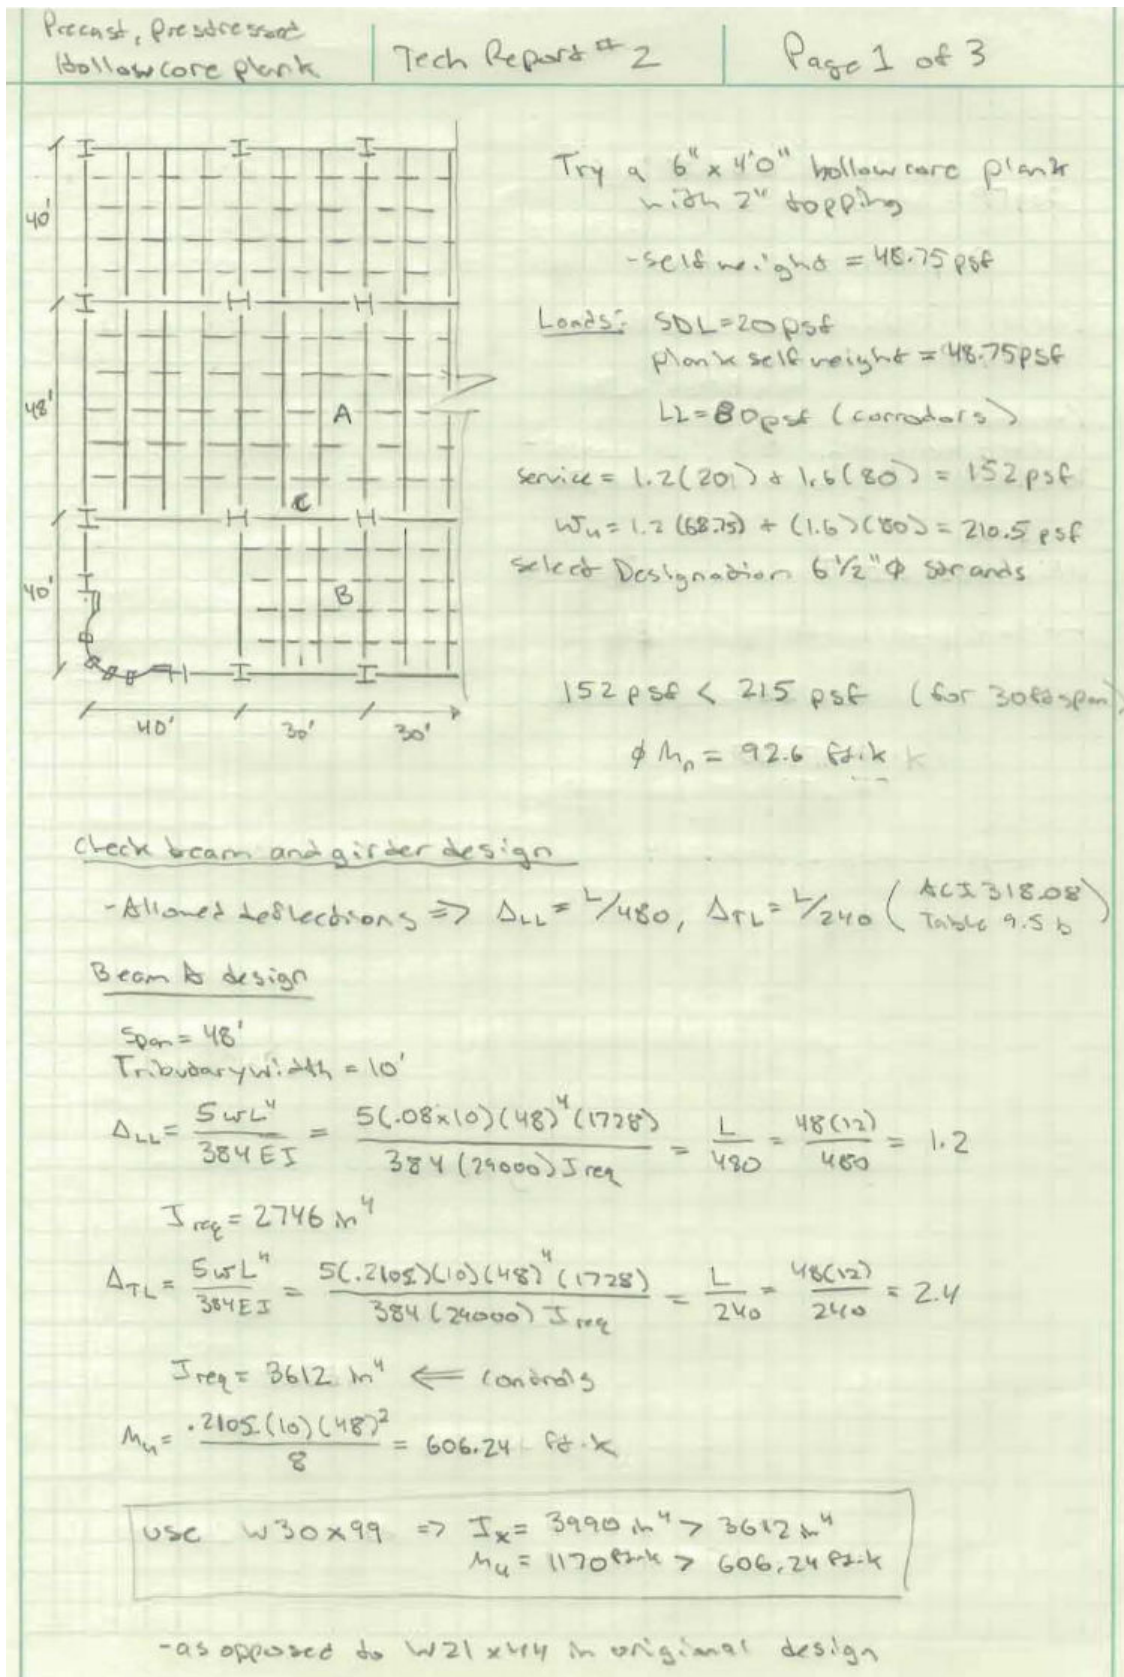 Precast, Prestressed
Hollowcore plank
Tech Report # 2
Page 1 of 3
40'
48'
40'
A
C
B
40'
30'
30'
Try a 6" x 4'0" hollowcore plank
with 2" topping
- self weight = 48.75 psf
Loads: SDL = 20 psf
plank self weight = 48.75 psf
LL = 80 psf (corradors)
service = 1.2(20) + 1.6(80) = 152 psf
Wu = 1.2 (68.75) + (1.6)(80) = 210.5 psf
select Designation 6 1/2" φ strands
152 psf < 215 psf (for 30ft span)
φ Mn = 92.6 ft.k
Check beam and girder design
- Allowed deflections => ΔLL = L/480, ΔTL = L/240 (ACI 318.08 Table 9.5 b)
Beam A design
Span = 48'
Tributary width = 10'
ΔLL = 5wL⁴/384EI = 5(.08x10)(48)⁴(1728)/384(29000)Ireq = L/480 = 48(12)/480 = 1.2
Ireq = 2746 in⁴
ΔTL = 5wL⁴/384EI = 5(.2105)(10)(48)⁴(1728)/384(29000)Ireq = L/240 = 48(12)/240 = 2.4
Ireq = 3612 in⁴ <= controls
Mu = .2105(10)(48)²/8 = 606.24 ft.k
use W30x99 => Ix = 3990 in⁴ > 3612 in⁴
Mu = 1170 ft.k > 606.24 ft.k
- as opposed to W21x44 in origional design